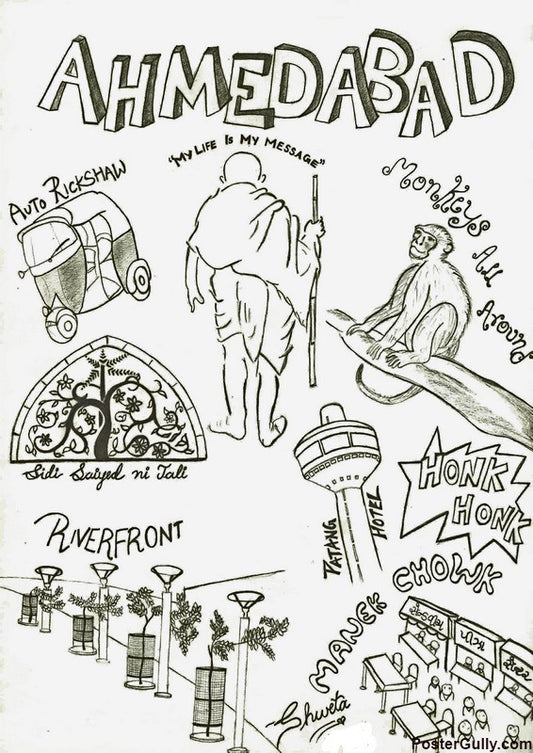 AHMEDABAD
"MY LIFE IS MY MESSAGE"
AUTO RICKSHAW
Monkeys All Around
Sidi Saiyed ni Jali
HONK
HONK
TATANG HOTEL
RIVERFRONT
MANEK CHOWK
પીઝા
Shweta
PosterGully.com